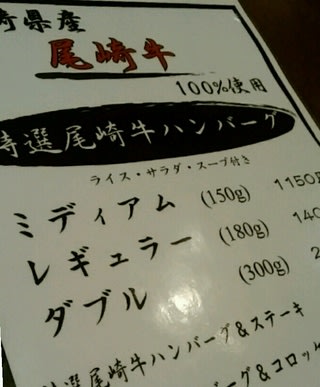 崎県産
尾崎牛
100%使用
特選尾崎牛ハンバーグ
ライス・サラダ・スープ付き
ミディアム (150g) 1150
レギュラー (180g) 140
ダブル (300g) 2
選尾崎牛ハンバーグ&ステーキ
バーグ&コロッケ